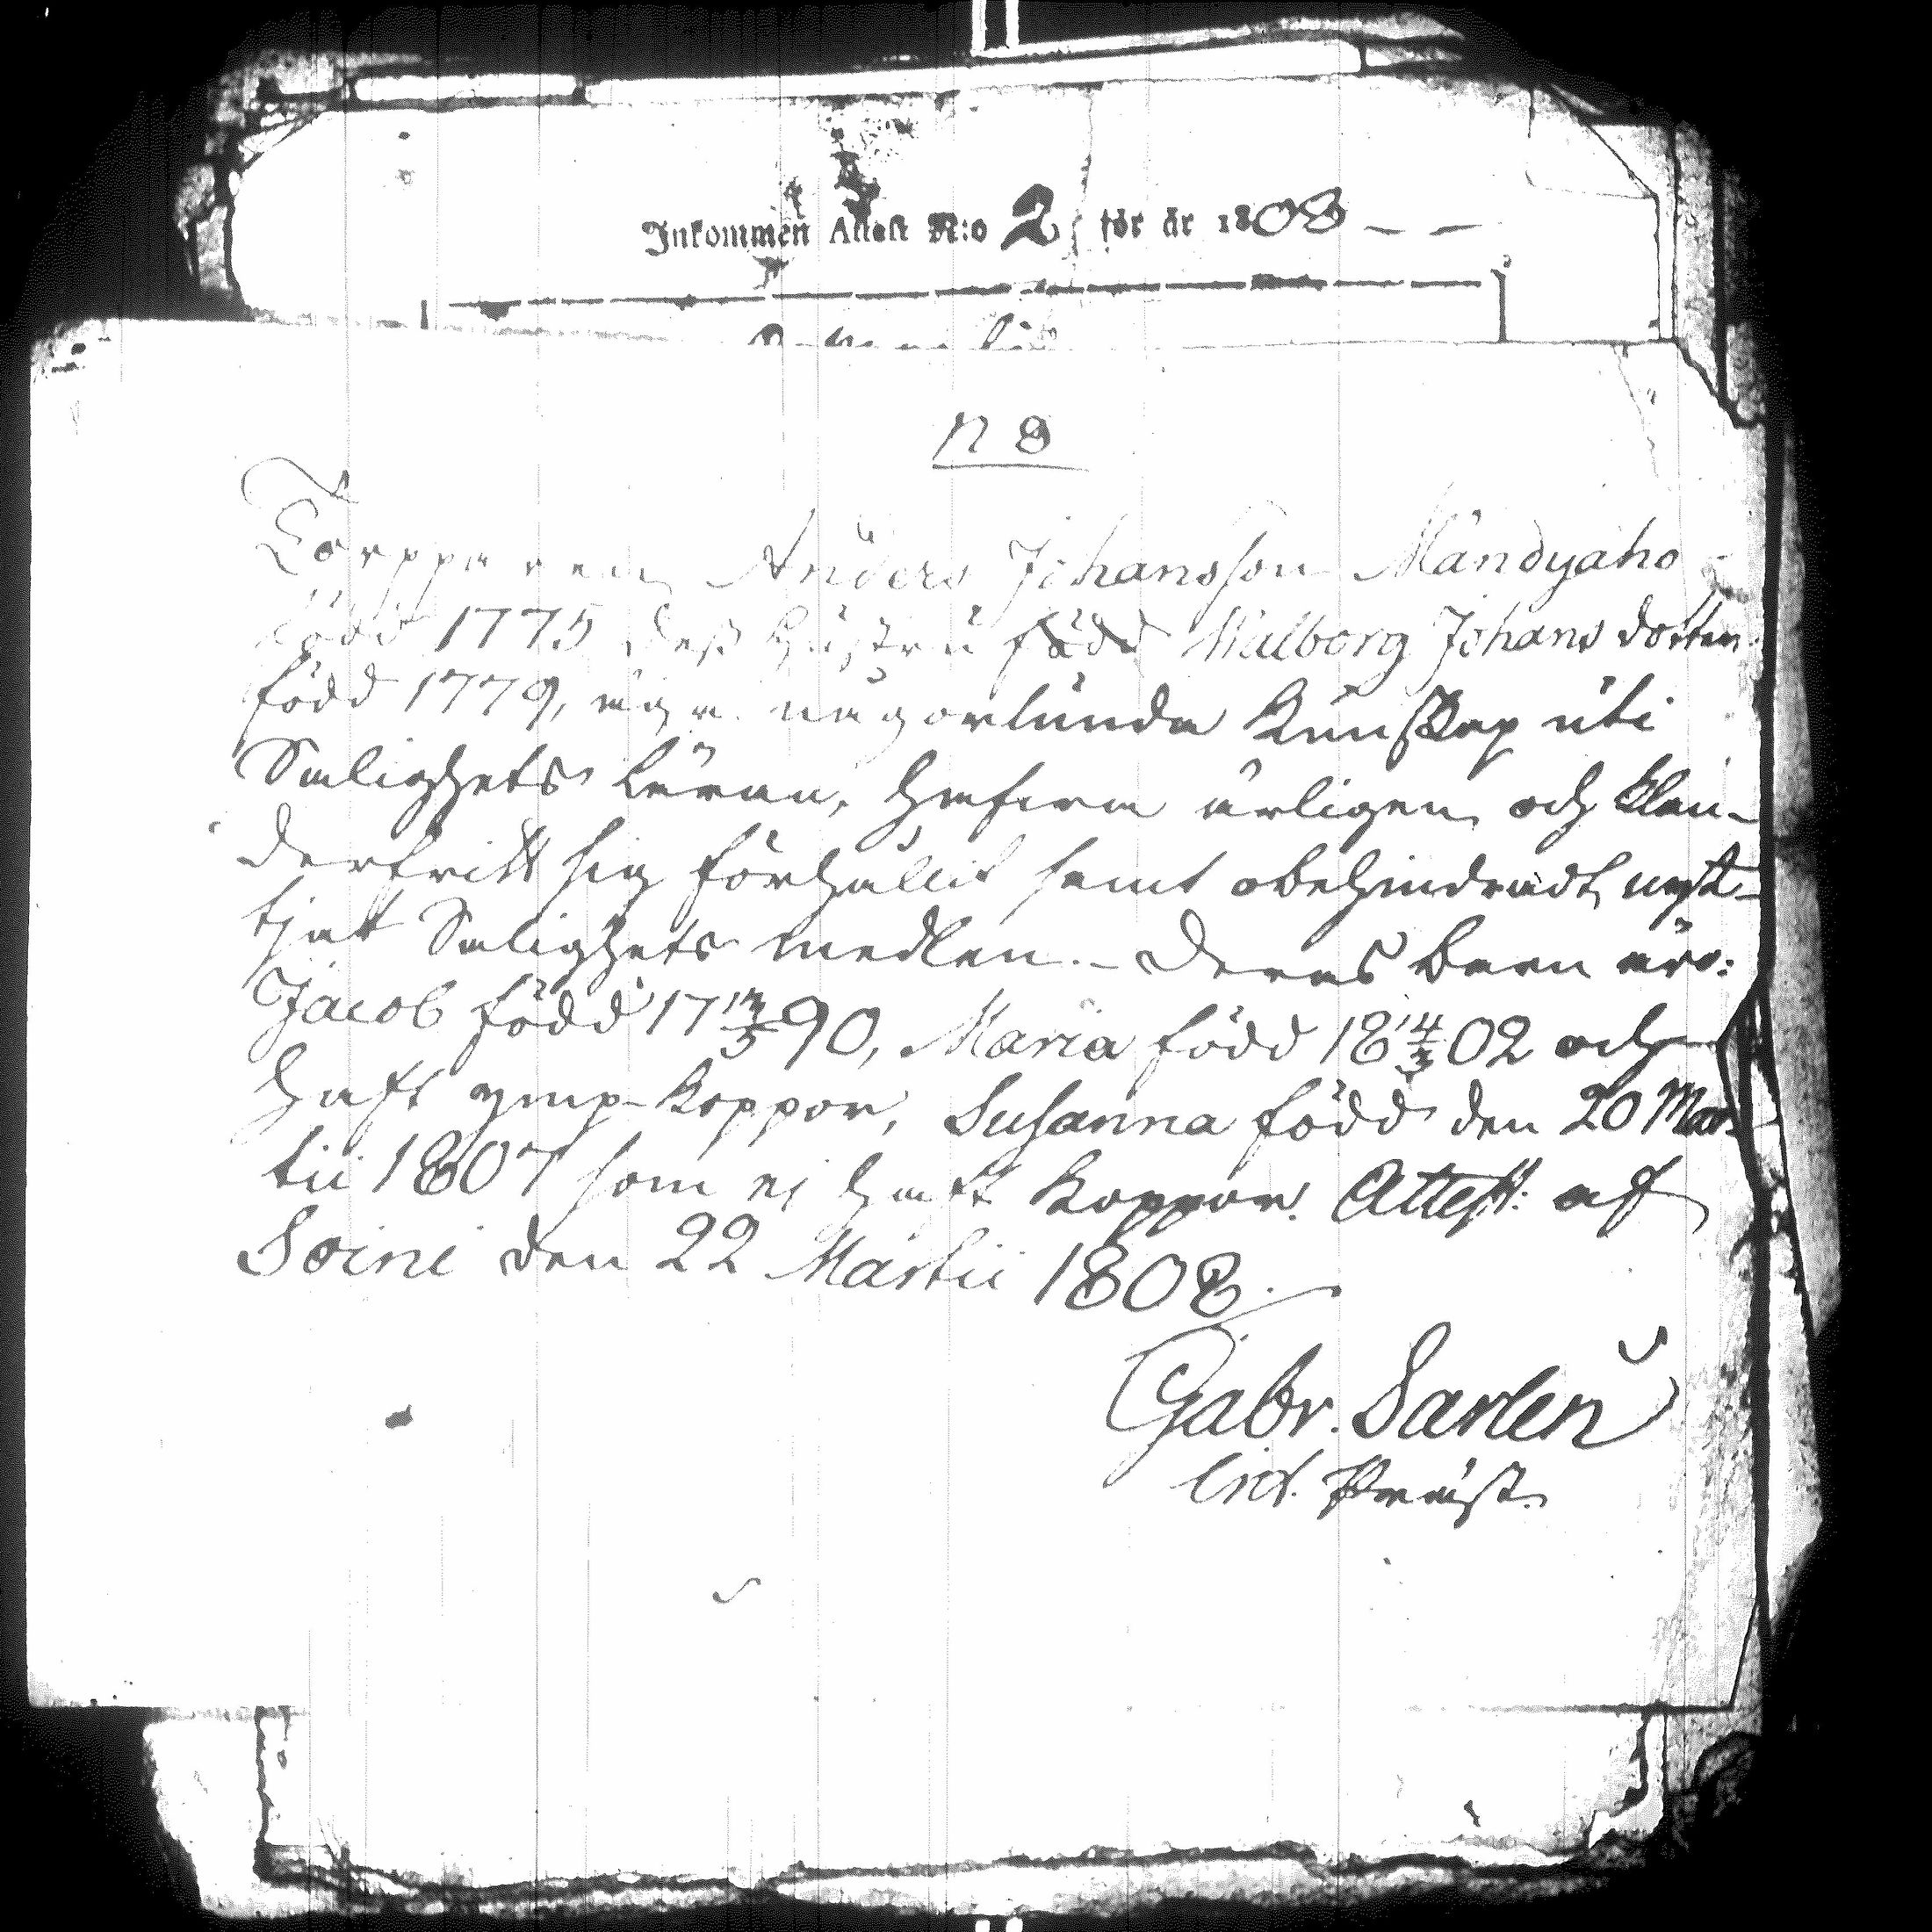 Inkommen Attest N:o 2 för år 1808
n 8
Torpparen Anders Johansson Mändyaho
född 1775 dess hustru född Walborg Johans dotter
född 1779, äga någorlunda kunskap uti
Salighets Läran, hafwa ärligen och klan-
derfritt sig förhållit samt obehindradt nytt-
tjat Salighets medlen. - Deras barn äro:
Jacob född 17 13/5 90, Maria född 18 14/3 02 och
haft ymp-koppor, Susanna född den 20 Mar-
tii 1807 som ej haft koppor. Attest: af
Soini den 22 Martii 1808.
Gabr. Sarlen
Ord. Präst.